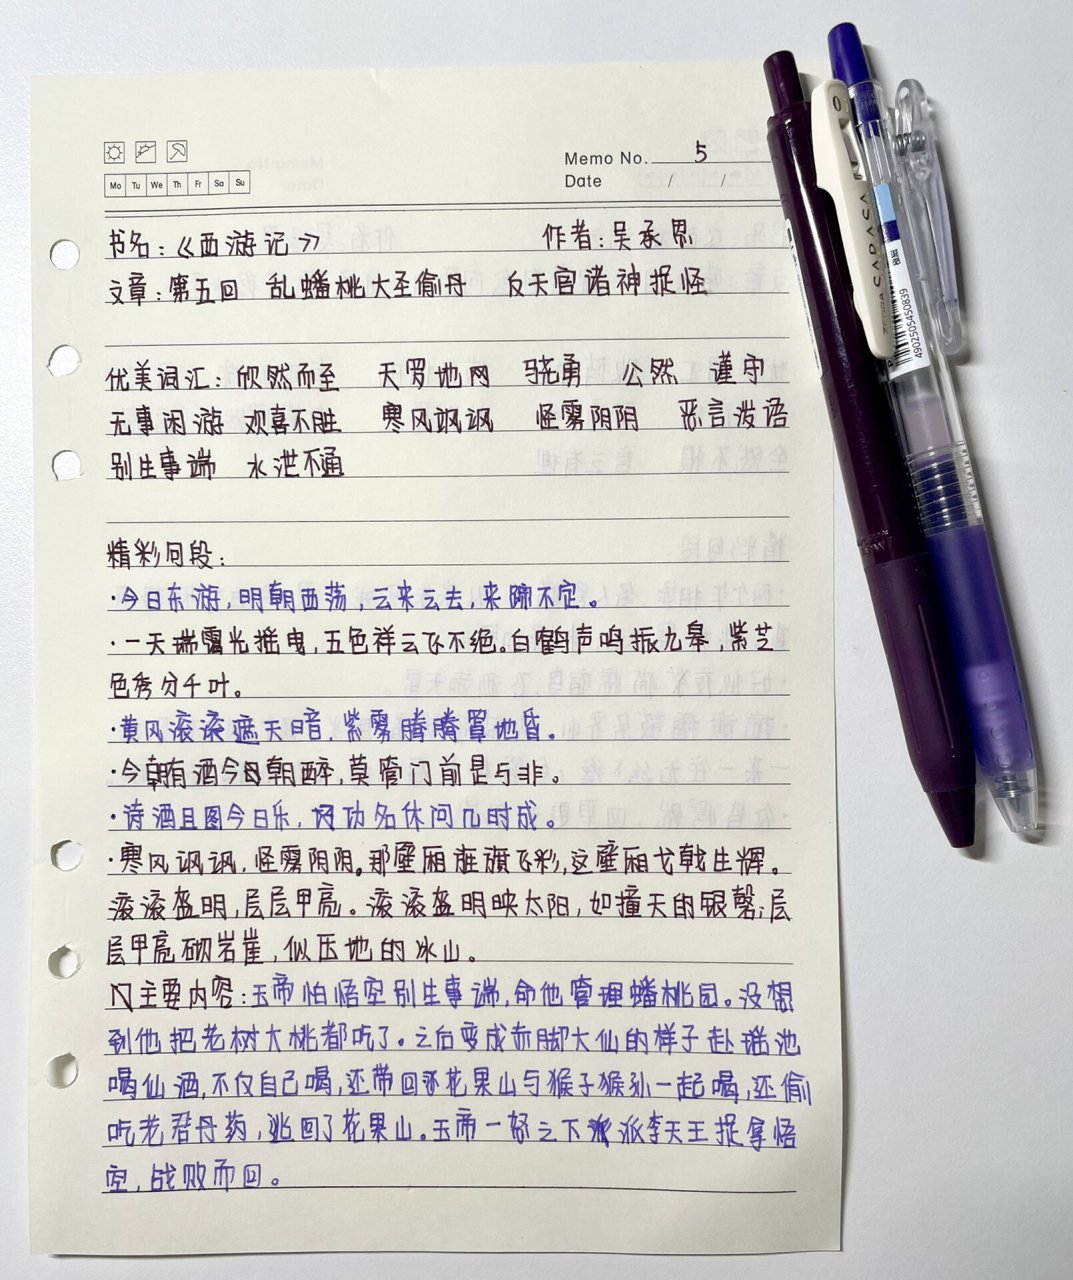 Memo No. 5
Mo Tu We Th Fr Sa Su
Date / /
书名:《西游记》 作者:吴承恩
文章:第五回 乱蟠桃大圣偷丹 反天宫诸神捉怪
优美词汇:欣然而至 天罗地网 骁勇 公然 谨守
无事闲游 欢喜不胜 寒风飒飒 怪雾阴阴 恶言泼语
别生事端 水泄不通
精彩句段:
·今日东游,明朝西荡,云来云去,来踪不定。
·一天瑞霭光摇曳,五色祥云飞不绝。白鹤声鸣振九皋,紫芝
色秀分千叶。
·黄风滚滚遮天暗,紫雾腾腾罩地昏。
·今朝有酒今日朝醉,莫管门前是与非。
·诗酒且图今日乐,功名休问几时成。
·寒风飒飒,怪雾阴阴。那壁厢旌旗飞彩,这壁厢戈戟生辉。
滚滚盔明,层层甲亮。滚滚盔明映太阳,如撞天的银磬;层
层甲亮砌岩崖,似压地的冰山。
主要内容:玉帝怕悟空别生事端,命他管理蟠桃园。没想
到他把老树大桃都吃了。之后变成赤脚大仙的样子赴瑶池
喝仙酒,不仅自己喝,还带回花果山与猴子猴孙一起喝,还偷
吃老君丹药,逃回了花果山。玉帝一怒之下派李天王捉拿悟
空,战败而回。
ZEBRA SARASA
4902505450839